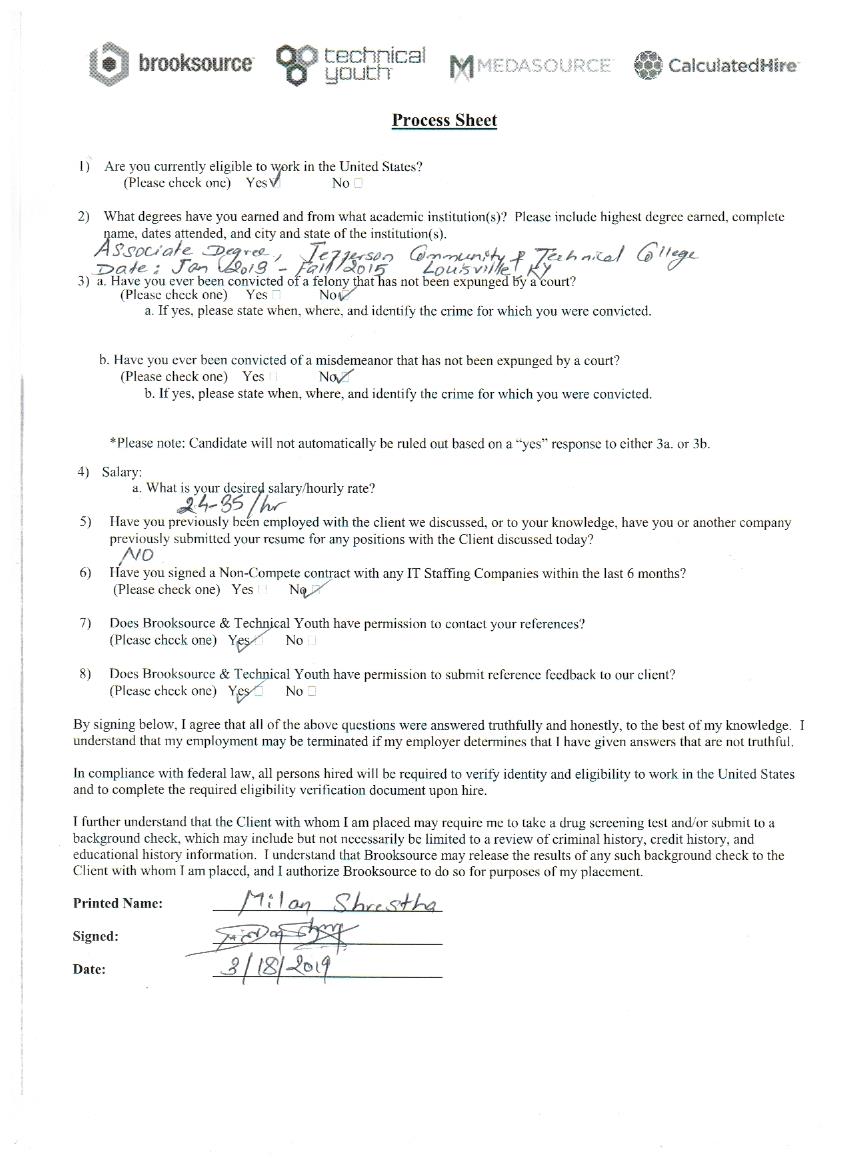 brooksource technical youth MEDASOURCE CalculatedHire
Process Sheet
1) Are you currently eligible to work in the United States?
(Please check one) Yes ✓ No □
2) What degrees have you earned and from what academic institution(s)? Please include highest degree earned, complete
name, dates attended, and city and state of the institution(s).
Associate Degree, Jefferson Community & Technical College
Date: Jan 2013 - Fall/2015 Louisville, KY
3) a. Have you ever been convicted of a felony that has not been expunged by a court?
(Please check one) Yes □ No ✓
a. If yes, please state when, where, and identify the crime for which you were convicted.
b. Have you ever been convicted of a misdemeanor that has not been expunged by a court?
(Please check one) Yes □ No ✓
b. If yes, please state when, where, and identify the crime for which you were convicted.
*Please note: Candidate will not automatically be ruled out based on a “yes” response to either 3a. or 3b.
4) Salary:
a. What is your desired salary/hourly rate?
24-35/hr
5) Have you previously been employed with the client we discussed, or to your knowledge, have you or another company
previously submitted your resume for any positions with the Client discussed today?
NO
6) Have you signed a Non-Compete contract with any IT Staffing Companies within the last 6 months?
(Please check one) Yes □ No ✓
7) Does Brooksource & Technical Youth have permission to contact your references?
(Please check one) Yes ✓ No □
8) Does Brooksource & Technical Youth have permission to submit reference feedback to our client?
(Please check one) Yes ✓ No □
By signing below, I agree that all of the above questions were answered truthfully and honestly, to the best of my knowledge. I
understand that my employment may be terminated if my employer determines that I have given answers that are not truthful.
In compliance with federal law, all persons hired will be required to verify identity and eligibility to work in the United States
and to complete the required eligibility verification document upon hire.
I further understand that the Client with whom I am placed may require me to take a drug screening test and/or submit to a
background check, which may include but not necessarily be limited to a review of criminal history, credit history, and
educational history information. I understand that Brooksource may release the results of any such background check to the
Client with whom I am placed, and I authorize Brooksource to do so for purposes of my placement.
Printed Name: Milan Shrestha
Signed:
Date: 3/18/2019